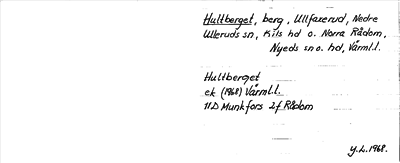 Hultberget, berg, Ullfaxerud, Nedre
Ulleruds sn, Kils hd o. Norra Rådom,
Nyeds sn o. hd, Värml.l.
Hultberget
ek (1968) Värml.l.
11D Munkfors 2f Rådom
y.L. 1968.